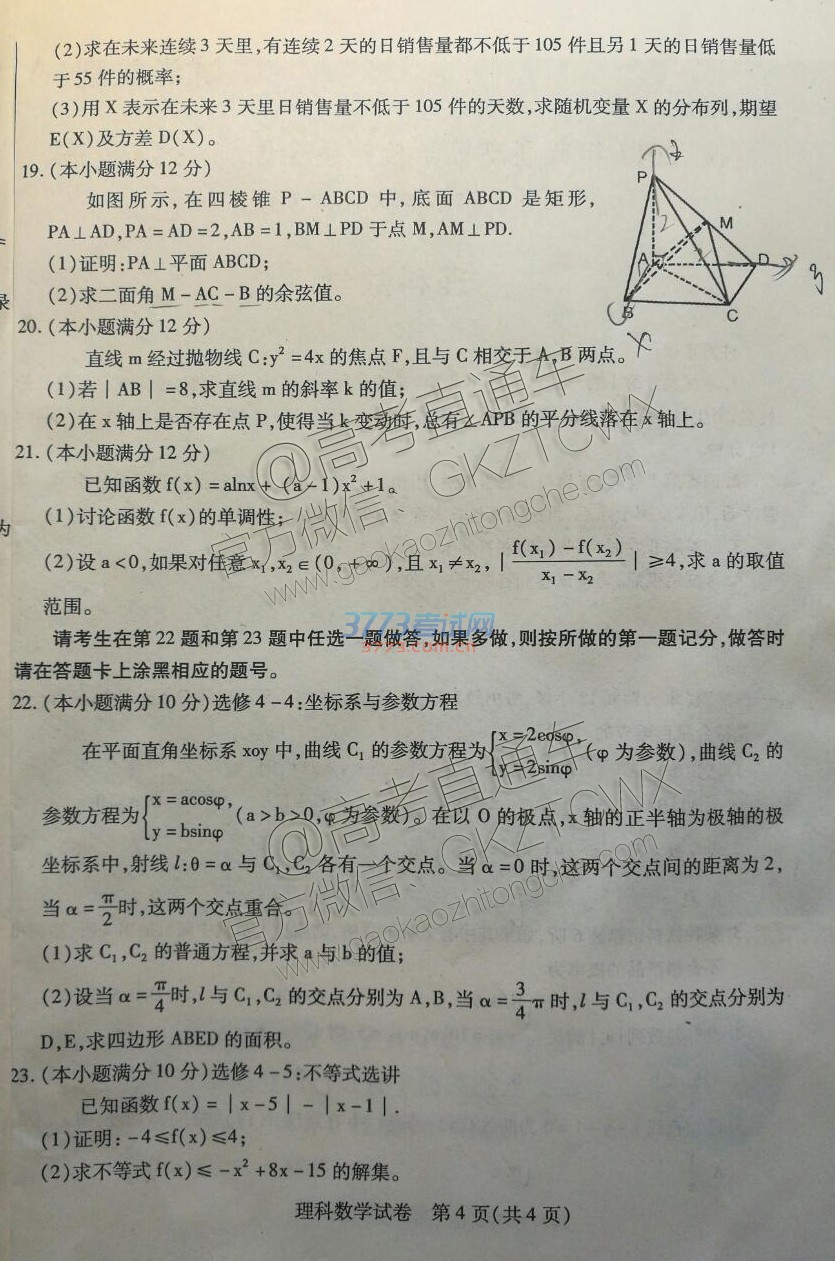 (2)求在未来连续3天里,有连续2天的日销售量都不低于105件且另1天的日销售量低
于55件的概率;
(3)用X表示在未来3天里日销售量不低于105件的天数,求随机变量X的分布列,期望
E(X)及方差D(X)。
19.(本小题满分12分)
如图所示,在四棱锥P-ABCD中,底面ABCD是矩形,
PA⊥AD,PA=AD=2,AB=1,BM⊥PD于点M,AM⊥PD.
(1)证明:PA⊥平面ABCD;
(2)求二面角M-AC-B的余弦值。
z
P
2
M
A
2
D
y
B
C
x
20.(本小题满分12分)
直线m经过抛物线C:y²=4x的焦点F,且与C相交于A,B两点。
(1)若|AB|=8,求直线m的斜率k的值;
(2)在x轴上是否存在点P,使得当k变动时,总有∠APB的平分线落在x轴上。
21.(本小题满分12分)
已知函数f(x)=alnx+(a-1)x²+1。
(1)讨论函数f(x)的单调性;
(2)设a<0,如果对任意x₁,x₂∈(0,+∞),且x₁≠x₂,|f(x₁)-f(x₂)/x₁-x₂|≥4,求a的取值
范围。
请考生在第22题和第23题中任选一题做答,如果多做,则按所做的第一题记分,做答时
请在答题卡上涂黑相应的题号。
22.(本小题满分10分)选修4-4:坐标系与参数方程
在平面直角坐标系xoy中,曲线C₁的参数方程为{x=2cosφ, y=2sinφ(φ为参数),曲线C₂的
参数方程为{x=acosφ, y=bsinφ(a>b>0,φ为参数)。在以O的极点,x轴的正半轴为极轴的极
坐标系中,射线l:θ=α与C₁,C₂各有一个交点。当α=0时,这两个交点间的距离为2,
当α=π/2时,这两个交点重合。
(1)求C₁,C₂的普通方程,并求a与b的值;
(2)设当α=π/4时,l与C₁,C₂的交点分别为A,B,当α=3/4π时,l与C₁,C₂的交点分别为
D,E,求四边形ABED的面积。
23.(本小题满分10分)选修4-5:不等式选讲
已知函数f(x)=|x-5|-|x-1|.
(1)证明:-4≤f(x)≤4;
(2)求不等式f(x)≤-x²+8x-15的解集。
理科数学试卷 第4页(共4页)
@高考直通车
官方微信、GKZTCWX
www.gaokaozhitongche.com
3773考试网
3773.com.cn
@高考直通车
官方微信、GKZTCWX
www.gaokaozhitongche.com